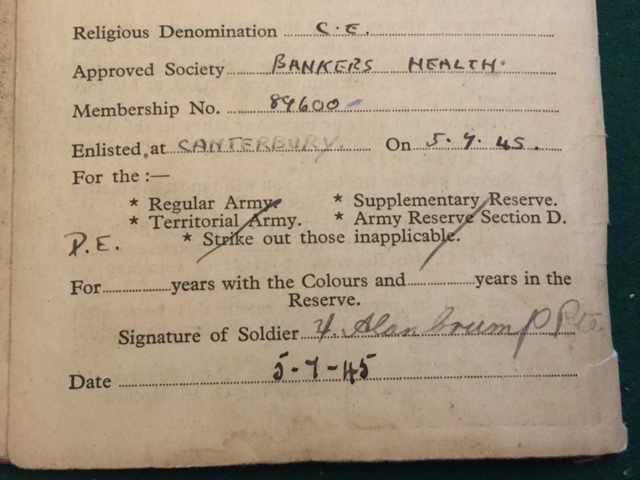 Religious Denomination C.E.
Approved Society BANKERS HEALTH.
Membership No. 89600
Enlisted at CANTERBURY. On 5.7.45.
For the :—
* Regular Army. * Supplementary Reserve.
* Territorial Army. * Army Reserve Section D.
* Strike out those inapplicable.
For years with the Colours and years in the
Reserve.
Signature of Soldier Alan Crump Pte.
Date 5-7-45